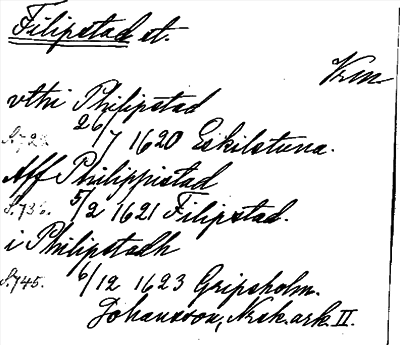 Filipstad st.
Vrm
vthi Philipstad
S. 728. 26/7 1620 Eskilstuna.
Aff Philippistad
S. 736. 5/2 1621 Filipstad.
i Philipstadh
S. 745. 6/12 1623 Gripsholm.
Johansson, Norsk. ark. II.